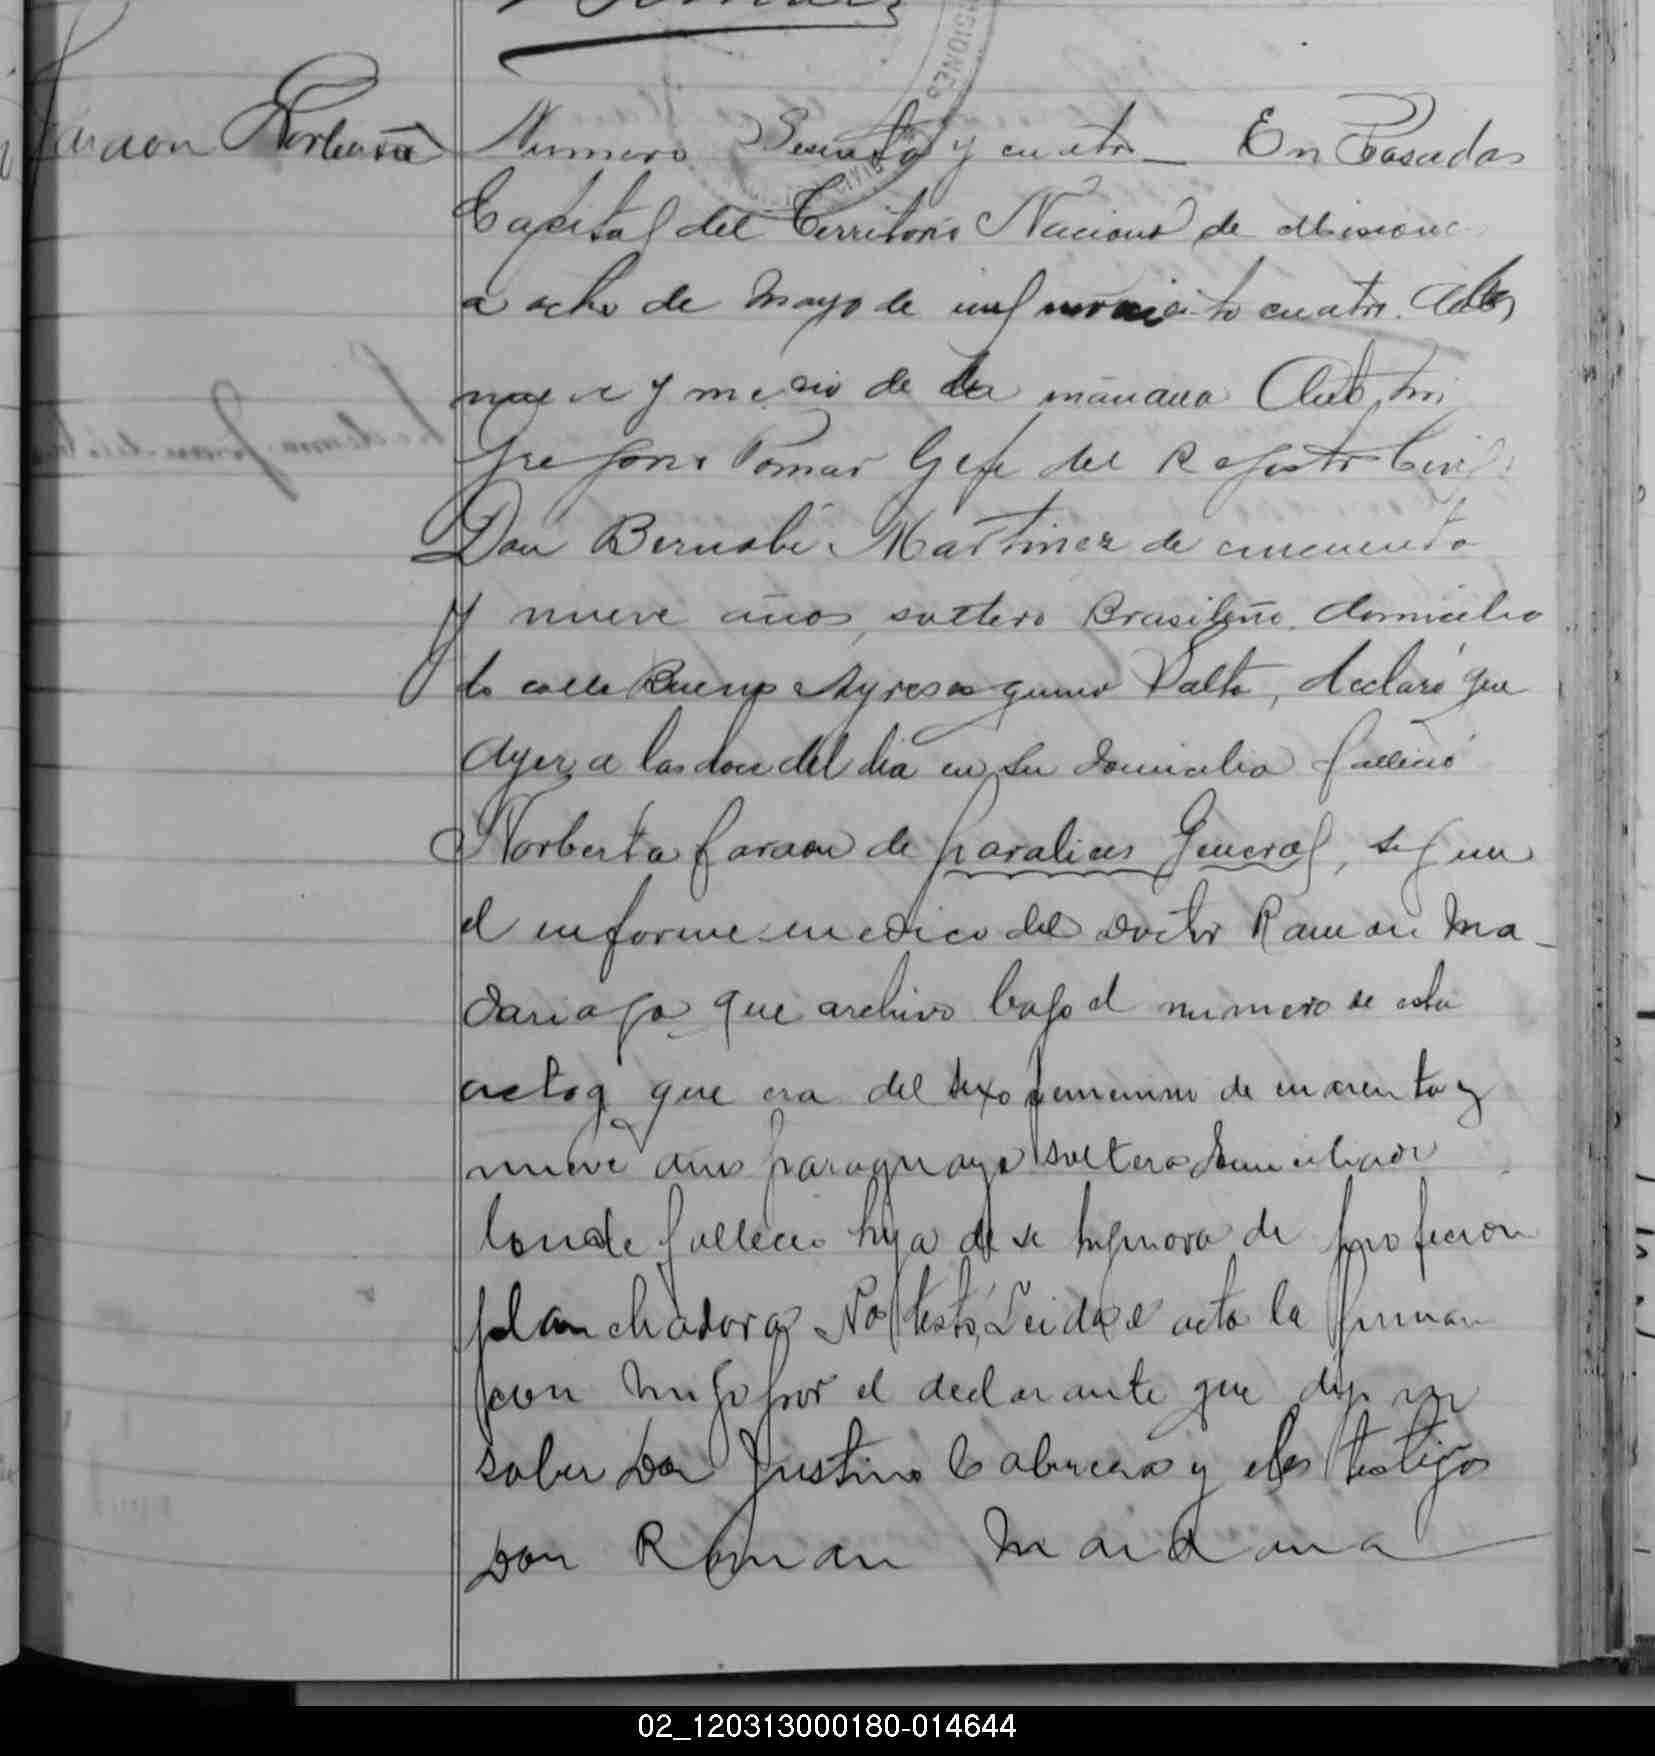 MISIONES
CIVIL
Faraon Norberta
Numero Sesenta y cuatro_ En Posadas
Capital del Territorio Nacional de Misiones
a ocho de Mayo de mil novecientos cuatro. A las
nueve y media de la mañana Ante mi
Gregorio Pomar Gefe del Registro Civil
Don Bernabé Martinez de cincuenta
y nueve años, soltero Brasileño, domicilia
do calle Buenos Ayres esquina Salta, declaró que
Ayer a las doce del dia en su domicilio falleció
Norberta Faraon de paralicis General, segun
el informe medico del doctor Ramon Ma-
dariaga que archivo bajo el numero de esta
acta y que era del sexo femenino de cuarenta y
nueve años paraguaya soltera domiciliada
donde fallecio hija de se ygnora de profecion
planchadora No testó, Leida el acta la firman
con migo por el declarante que dijo no
saber Don Justino Cabrera y los testigos
Don Roman Maidana
02_120313000180-014644